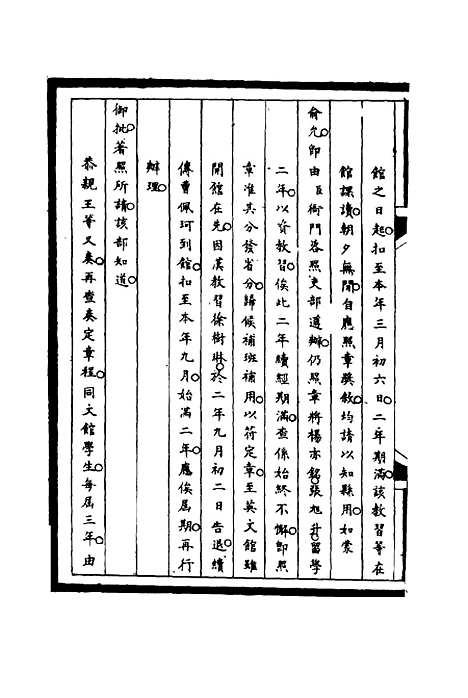 館之日起。扣至本年三月初六日。二年期滿。該教習等在
館課讀。朝夕無間。自應照章獎敘。均請以知縣用。如蒙
俞允。即由臣衙門咨照吏部遵辦。仍照章將楊亦銘。張旭升。留學
二年。以資教習。俟此二年續經期滿。查係始終不懈。即照
章准其分發省分。歸候補班補用。以符定章。至英文館。雖
開館在先。因漢教習徐樹琳。於二年九月初二日告退。續
傳曹佩珂到館。扣至本年九月。始滿二年。應俟屆期。再行
辦理。
御批。著照所請。該部知道。
恭親王等又奏。再查奏定章程。同文館學生。每屆三年。由